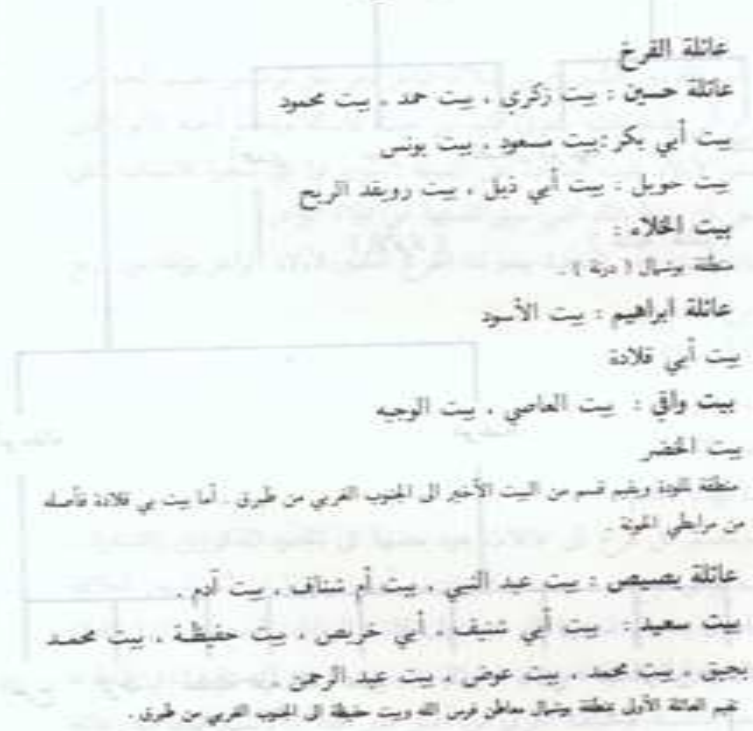 عائلة الفرخ
عائلة حسين : بيت زكري ، بيت حمد ، بيت محمود
بيت أبي بكر : بيت مسعود ، بيت يونس
بيت حويل : بيت أبي ذيل ، بيت رويقد الريح
بيت الخلاء :
منطقة بوشمال ( درنة ) .
عائلة ابراهيم : بيت الأسود
بيت أبي قلادة
بيت وافي : بيت العاصي ، بيت الوجيه
بيت الخضر
منطقة ويقيم قسم من البيت الأخير الى الجنوب الغربي من طبرق . أما بيت بي قلادة فأصله
من مرابطي الحوتة .
عائلة بصيص : بيت عبد النبي ، بيت أم شناف ، بيت آدم .
بيت سعيد : بيت أبي شنيف ، أبي خريص ، بيت حفيظة ، بيت محمد
بيت محمد ، بيت عوض ، بيت عبد الرحمن .
تقيم العائلة الأولى بمنطقة معاطن فرس الله وبيت حفيظة الى الجنوب الغربي من طبرق .